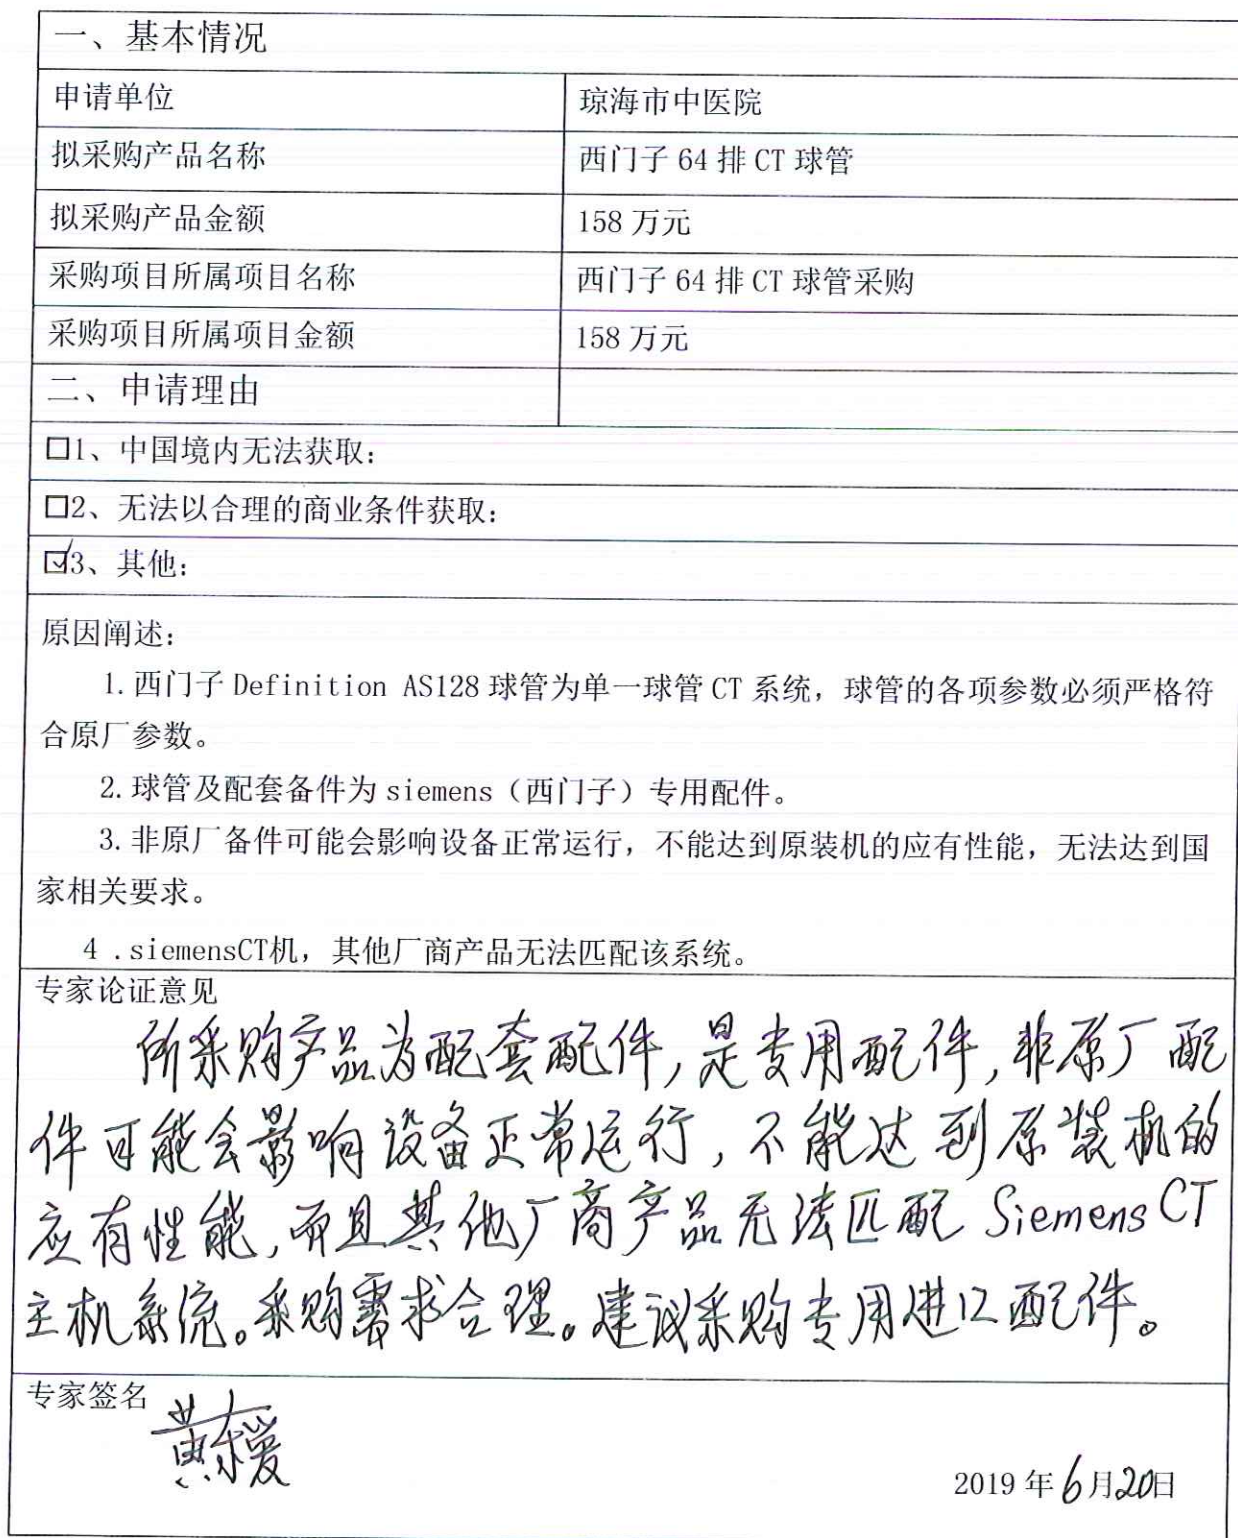 一、基本情况
申请单位 琼海市中医院
拟采购产品名称 西门子 64 排 CT 球管
拟采购产品金额 158 万元
采购项目所属项目名称 西门子 64 排 CT 球管采购
采购项目所属项目金额 158 万元
二、申请理由
□1、中国境内无法获取：
□2、无法以合理的商业条件获取：
☑3、其他：
原因阐述：
1. 西门子 Definition AS128 球管为单一球管 CT 系统，球管的各项参数必须严格符
合原厂参数。
2. 球管及配套备件为 siemens（西门子）专用配件。
3. 非原厂备件可能会影响设备正常运行，不能达到原装机的应有性能，无法达到国
家相关要求。
4 .siemensCT机，其他厂商产品无法匹配该系统。
专家论证意见
所采购产品为配套配件，是专用配件，非原厂配
件可能会影响设备正常运行，不能达到原装机的
应有性能，而且其他厂商产品无法匹配 Siemens CT
主机系统。采购需求合理。建议采购专用进口配件。
专家签名
2019 年 6 月 20 日